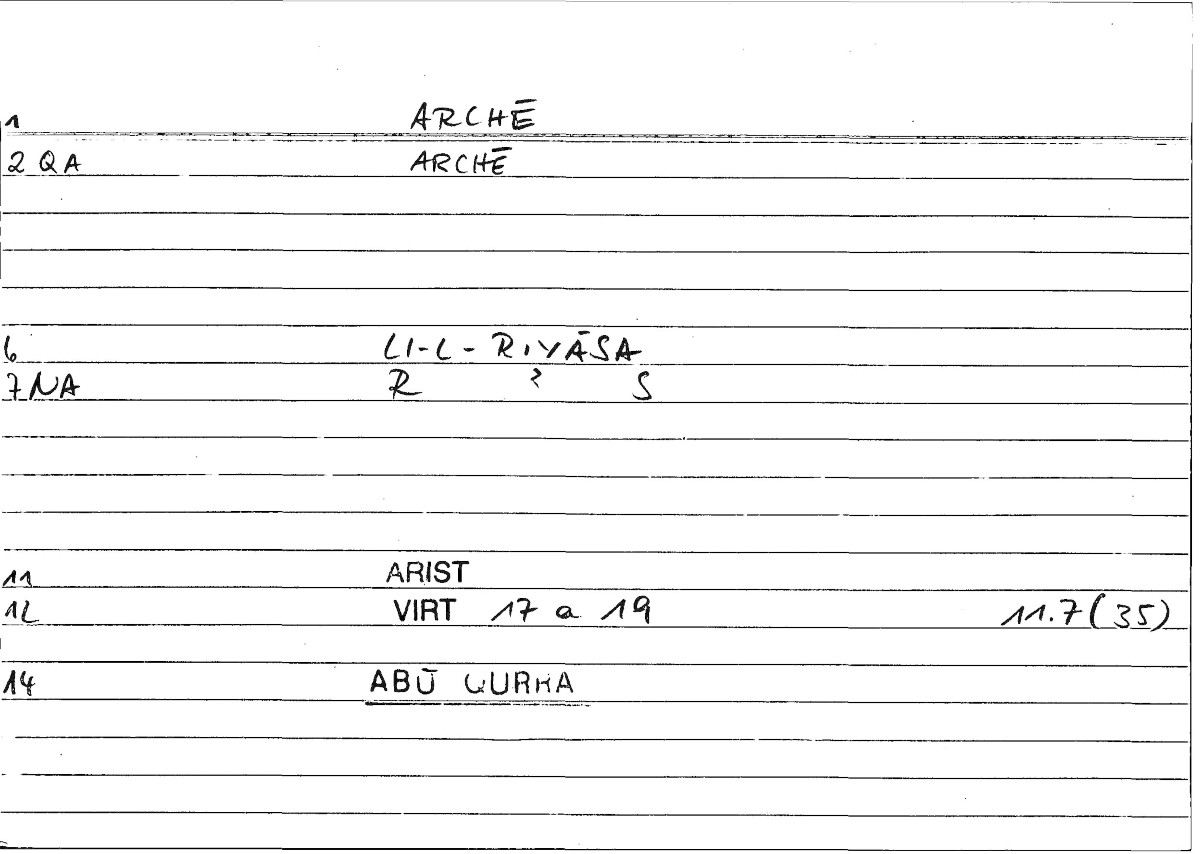 1 ARCHĒ
2 QA ARCHĒ
6 LI-L-RIYĀSA
7 NA R ʾ S
11 ARIST
12 VIRT 17 a 19 11.7(35)
14 ABŪ QURRA